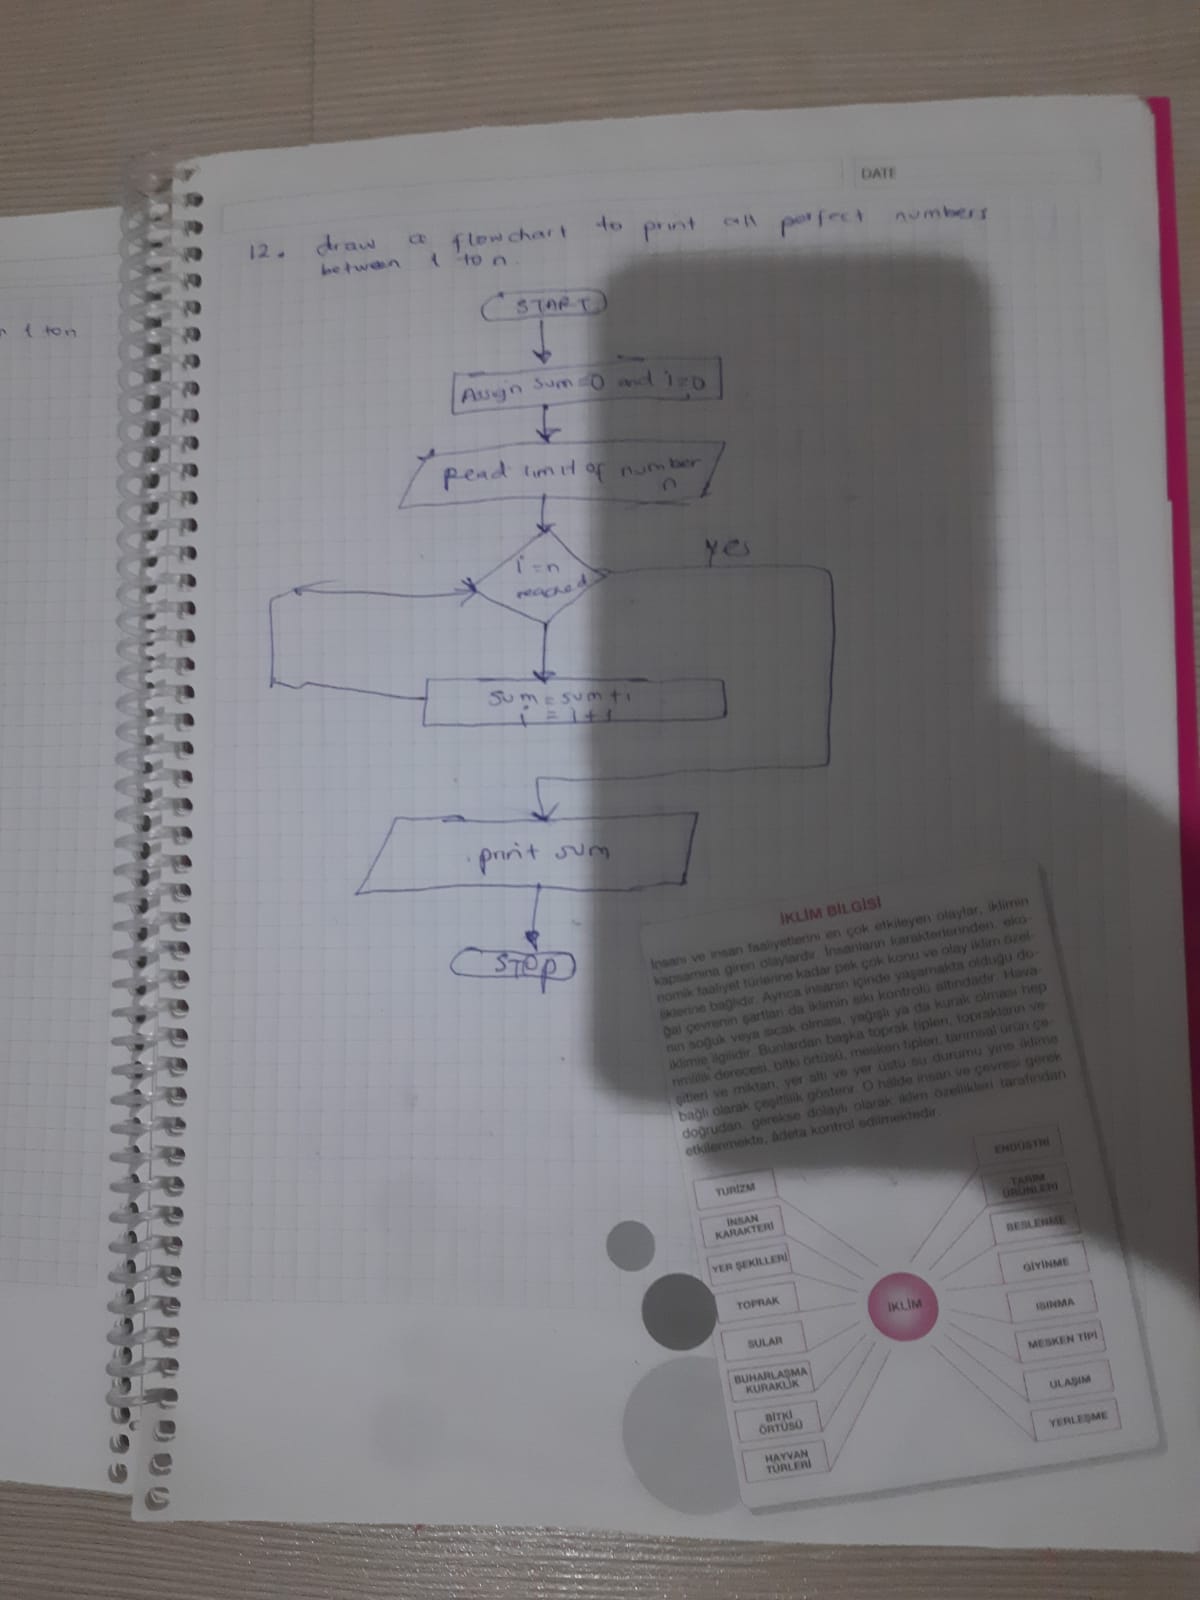 DATE
12. draw a flowchart to print all perfect numbers
between 1 to n.
1 ton
START
Assign sum=0 and i=0
Read limit of number
n
i=n
reached
yes
sum=sum+i
i=i+1
print sum
STOP
İKLİM BİLGİSİ
İnsanı ve insan faaliyetlerini en çok etkileyen olaylar, iklimin
kapsamına giren olaylardır. İnsanların karakterlerinden, eko-
nomik faaliyet türlerine kadar pek çok konu ve olay iklim özel-
liklerine bağlıdır. Ayrıca insanın içinde yaşamakta olduğu do-
ğal çevrenin şartları da iklimin sıkı kontrolü altındadır. Hava-
nın soğuk veya sıcak olması, yağışlı ya da kurak olması hep
iklimle ilgilidir. Bunlardan başka toprak tipleri, toprakların ve-
rimlilik derecesi, bitki örtüsü, mesken tipleri, tarımsal ürün çe-
şitleri ve miktarı, yer altı ve yer üstü su durumu yine iklime
bağlı olarak çeşitlilik gösterir. O hâlde insan ve çevresi gerek
doğrudan, gerekse dolaylı olarak iklim özellikleri tarafından
etkilenmekte, âdeta kontrol edilmektedir.
TURİZM
İNSAN
KARAKTERİ
YER ŞEKİLLERİ
TOPRAK
SULAR
BUHARLAŞMA
KURAKLIK
BİTKİ
ÖRTÜSÜ
HAYVAN
TÜRLERİ
İKLİM
ENDÜSTRİ
TARIM
ÜRÜNLERİ
BESLENME
GİYİNME
ISINMA
MESKEN TİPİ
ULAŞIM
YERLEŞME